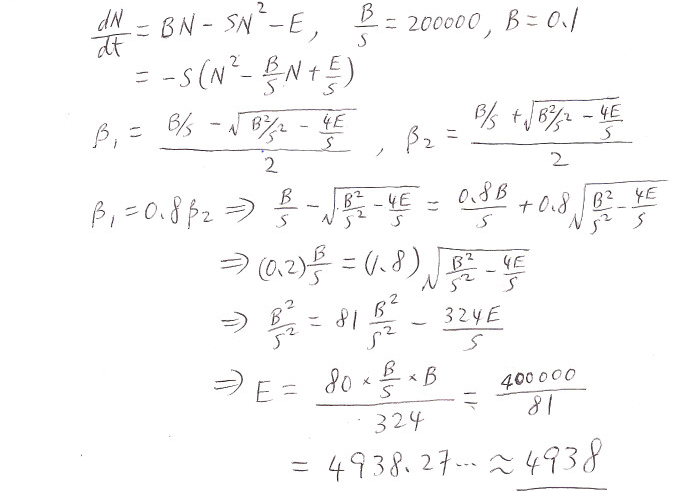 dN/dt = BN - SN² - E, B/S = 200000, B = 0.1
= -S(N² - B/S N + E/S)
β₁ = (B/S - √(B²/S² - 4E/S))/2 , β₂ = (B/S + √(B²/S² - 4E/S))/2
β₁ = 0.8β₂ ⇒ B/S - √(B²/S² - 4E/S) = 0.8B/S + 0.8√(B²/S² - 4E/S)
⇒ (0.2)B/S = (1.8)√(B²/S² - 4E/S)
⇒ B²/S² = 81 B²/S² - 324E/S
⇒ E = (80 × B/S × B)/324 = 400000/81
= 4938.27... ≈ 4938